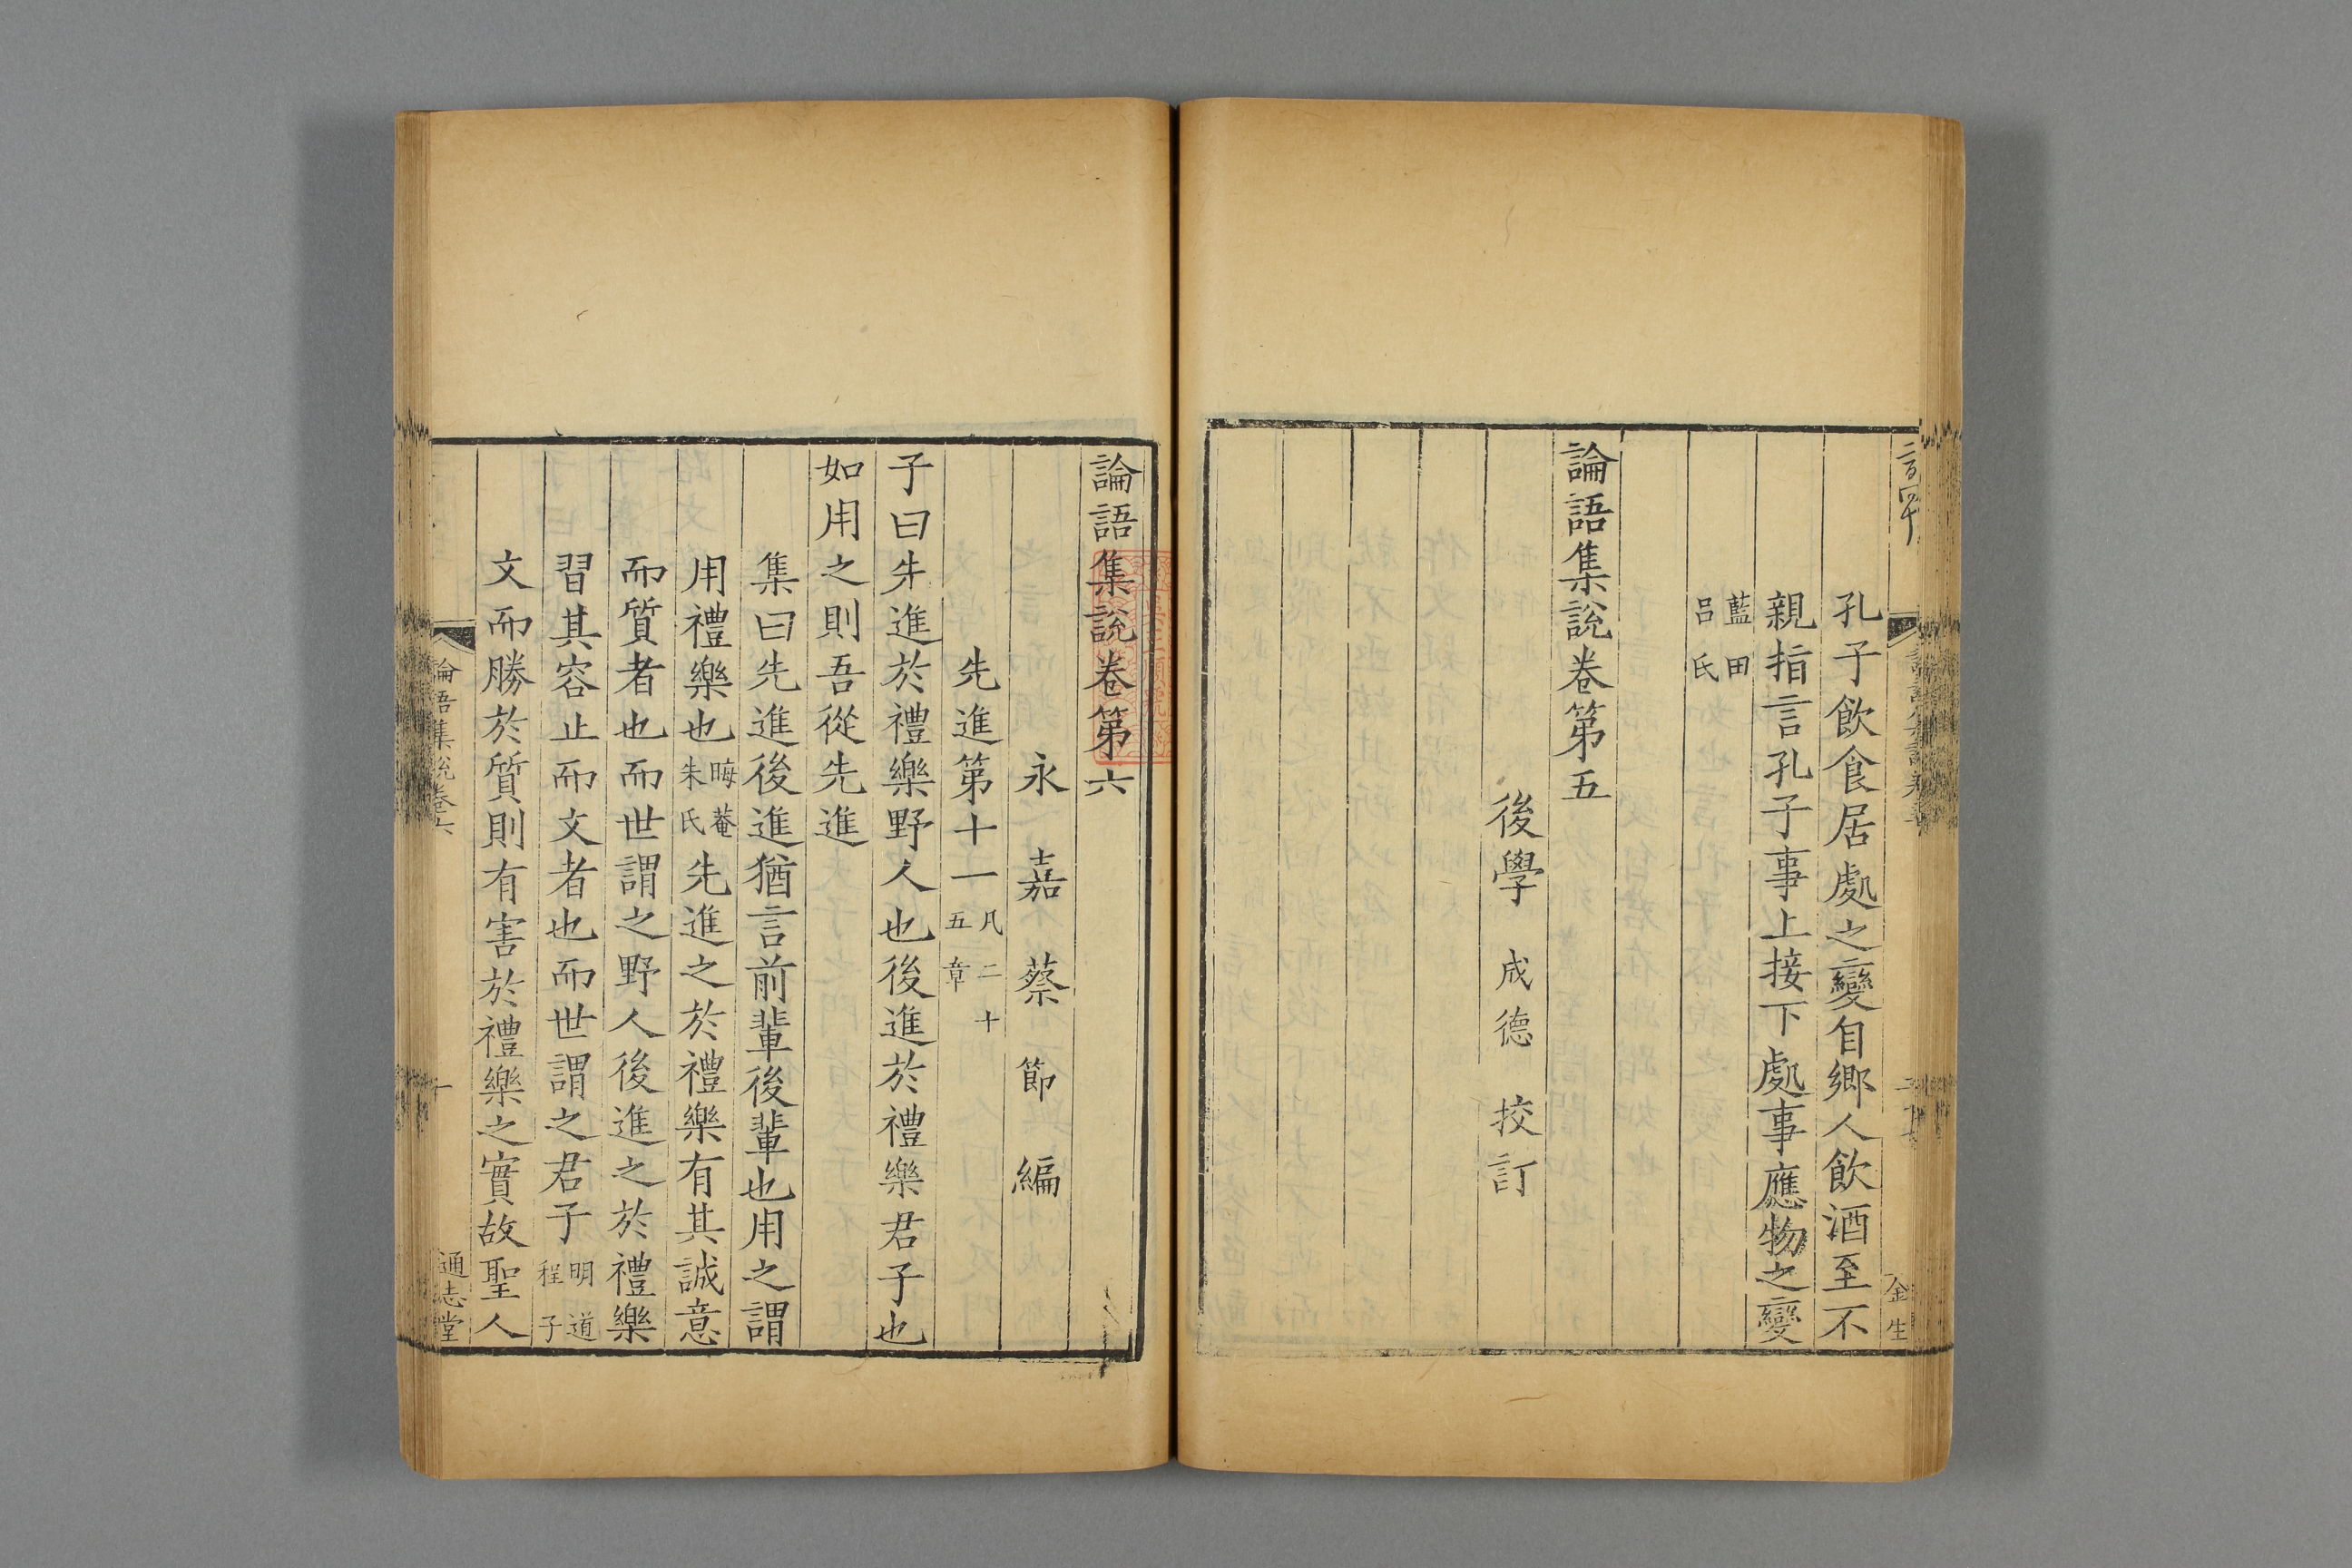 孔子飲食居處之變自鄉人飲酒至不
親指言孔子事上接下處事應物之變
藍田
呂氏
論語集說卷第五
後學 成德 挍訂
金生
論語集說卷第六
永嘉蔡節編
先進第十一凡二十五章
子曰先進於禮樂野人也後進於禮樂君子也
如用之則吾從先進
集曰先進後進猶言前輩後輩也用之謂
用禮樂也晦菴朱氏先進之於禮樂有其誠意
而質者也而世謂之野人後進之於禮樂
習其容止而文者也而世謂之君子明道程子
文而勝於質則有害於禮樂之實故聖人
論語集說卷六
通志堂